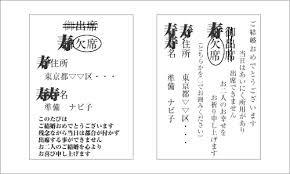 御出席
寿欠席
寿住所
東京都▽▽区・・・
寿寿名
準備 ナビ子
このたびは
ご結婚おめでとうございます
残念ながら当日は都合が付かず
出席する事ができません
お二人のご結婚を心より
お喜び申し上げます
ご結婚おめでとうございます
当日はあいにく所用があり
出席できません
お二人のお幸せを
お祈り申し上げます
御出席
寿欠席
(どちらかを○でお囲みください)
寿住所
東京都▽▽区・・・
寿寿名
準備 ナビ子